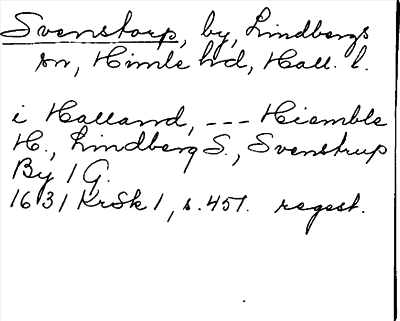 Svenstorp, by, Lindbergs
sn, Himle hd, Hall. l.
i Halland, --- Hiemble
H., Lindberg S., Svenstrup
By 1 G.
1631 KrSk 1, s. 457. regest.